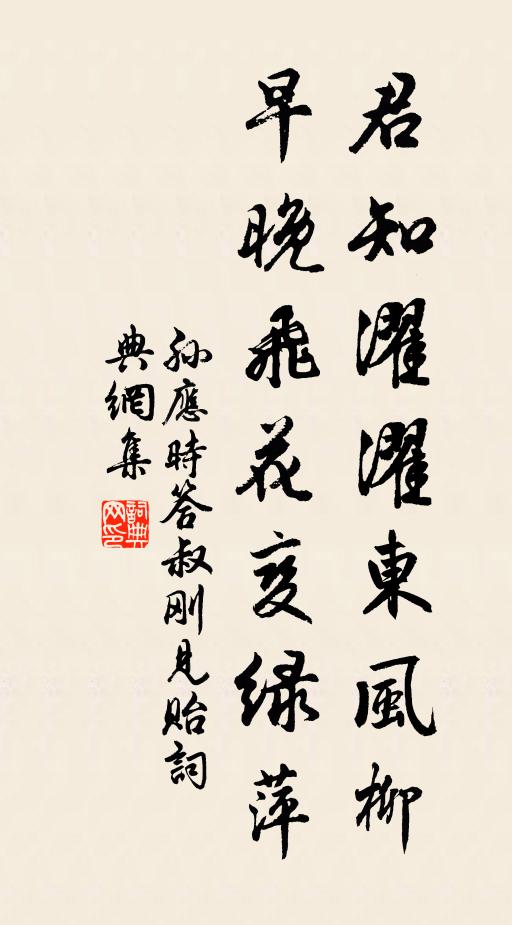 君知濯濯東風柳
早晚飛花变绿萍
孙應時答叔刚見貽詞
典網集
詞典网印